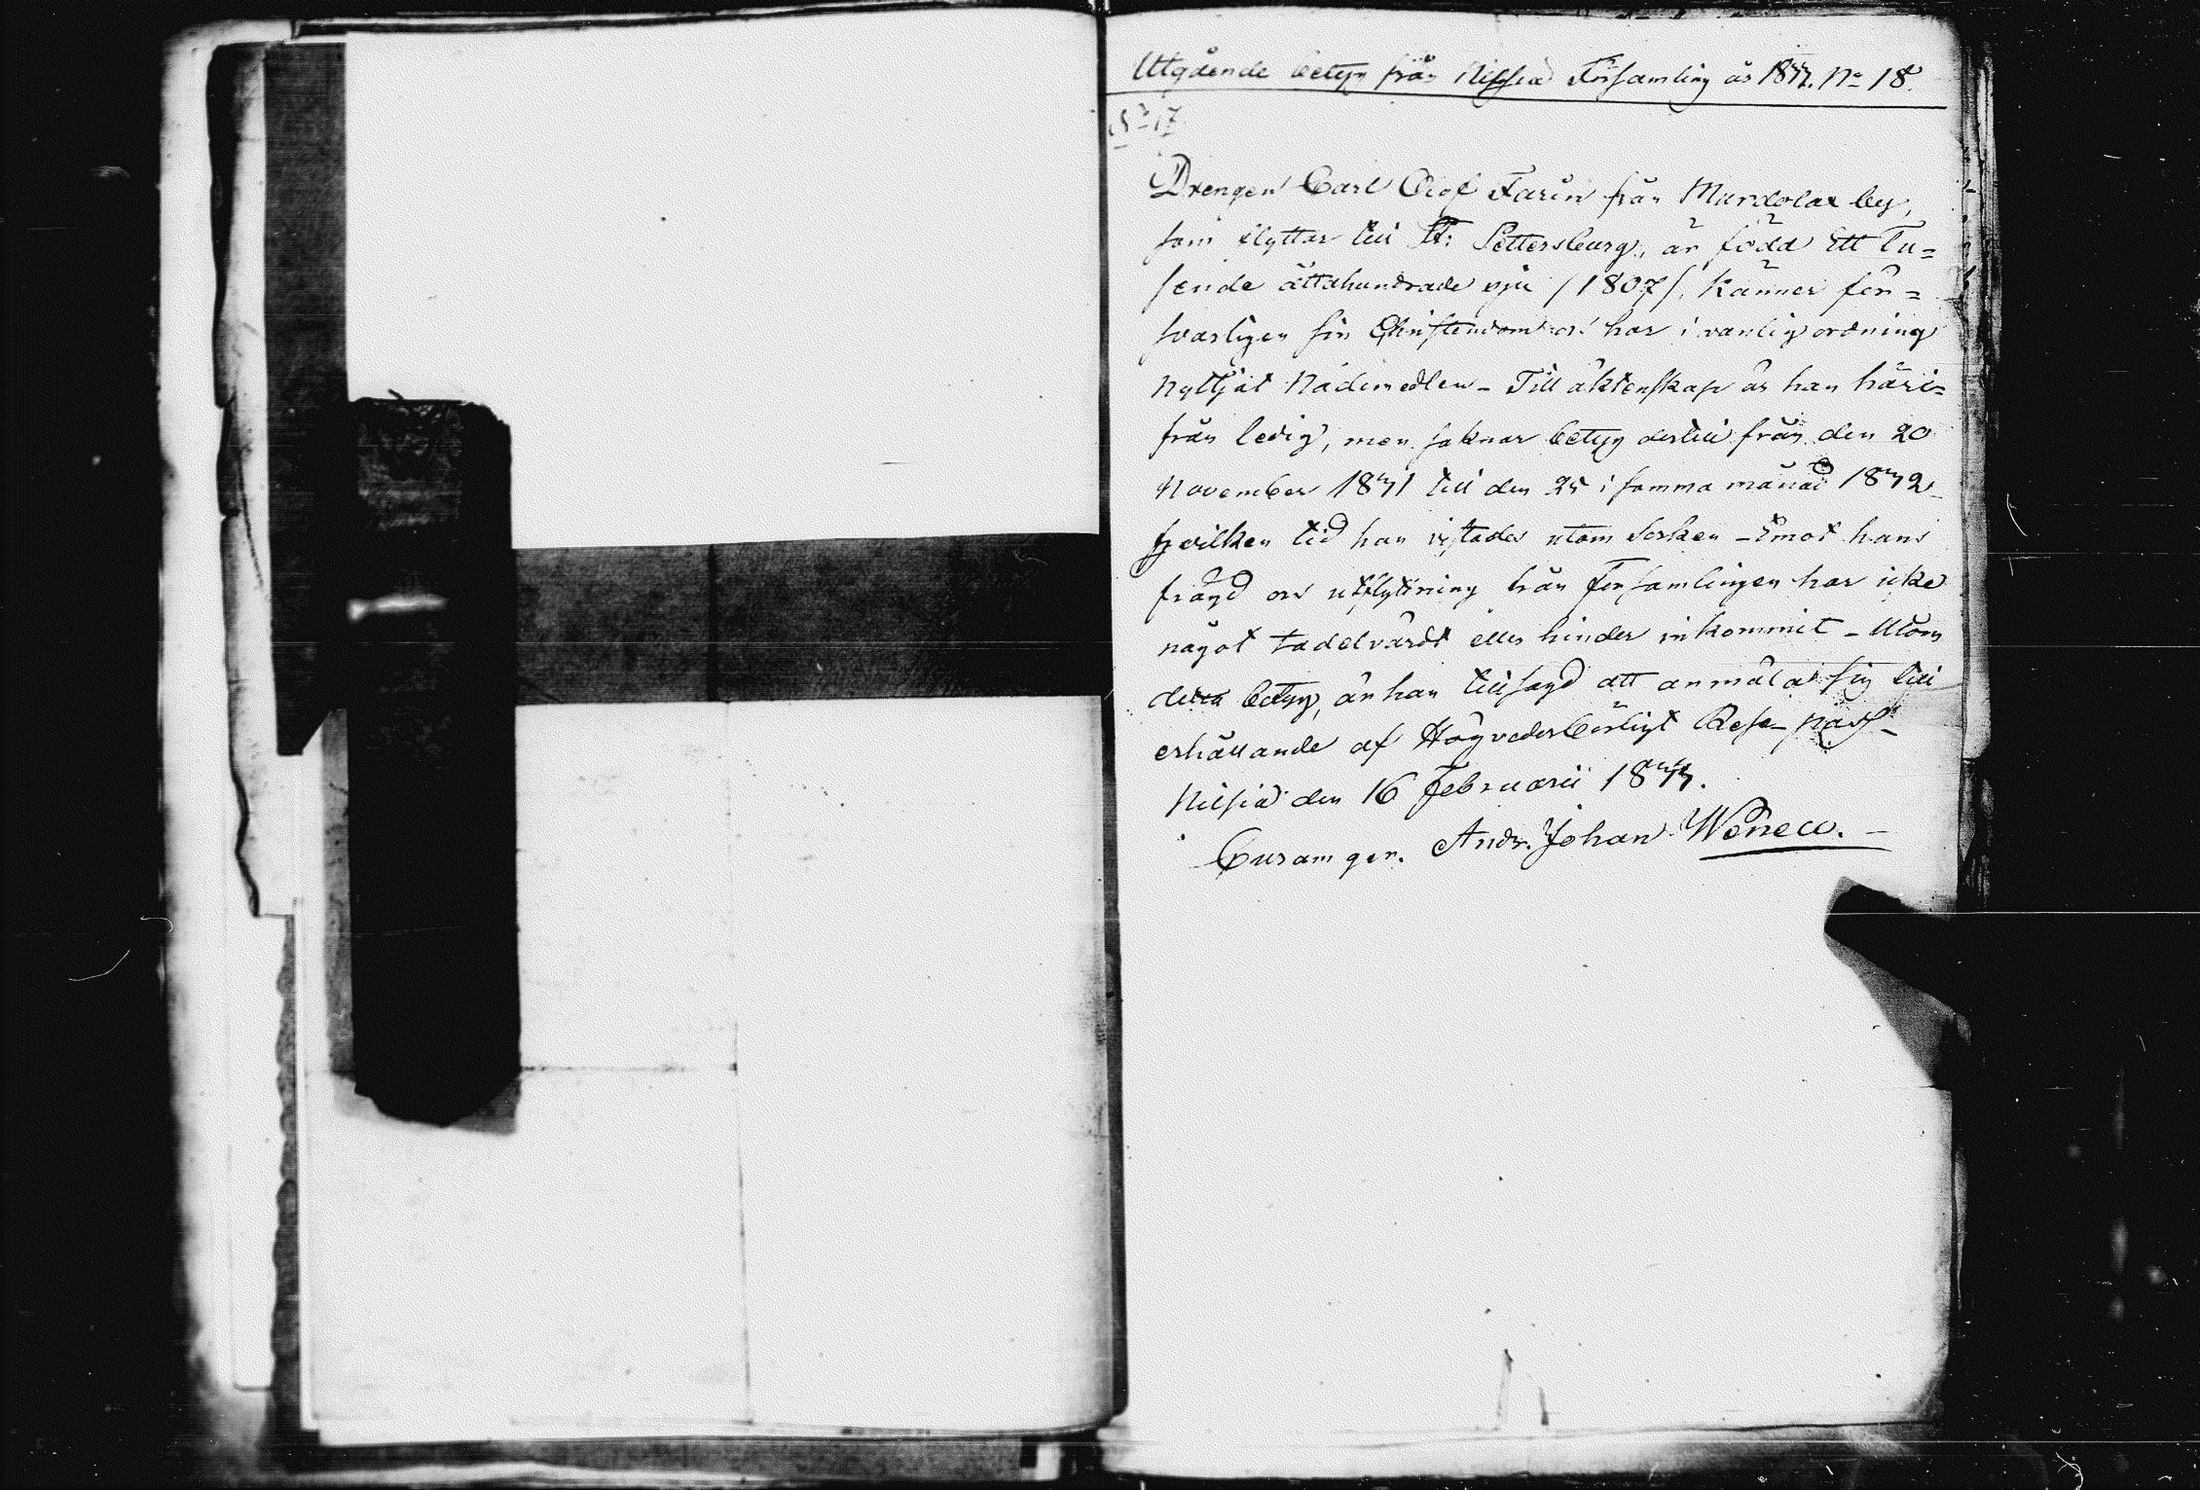 Utgående betyg från Nilsiä Församling år 1844. No 18.
No 17
Drengen Carl Olof Farin från Murdolax by,
som flyttar till St: Pettersburg, är född Ett Tu=
sende åttahundrade sju /1807/. Känner för=
svarligen sin Christendom och har i vanlig ordning
nyttjat Nådemedlen - Till äktenskap är han häri=
från ledig, men saknar betyg dertill från den 20
November 1841 till den 25 i samma månad 1842
hvilken tid han vistades utom Socken - Emot hans
frägd och utflyttning från Församlingen har icke
något tadelvärdt eller hinder inkommit - Utom
detta betyg, är han tillsagd att anmäla sig till
erhållande af Högvederbörligt Rese-pass -
Nilsiä den 16 Februarii 1844.
Curam ger. Andr. Johan